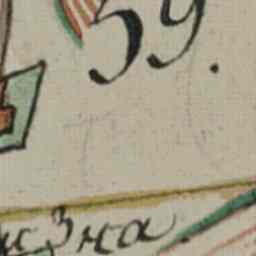 59.
изна